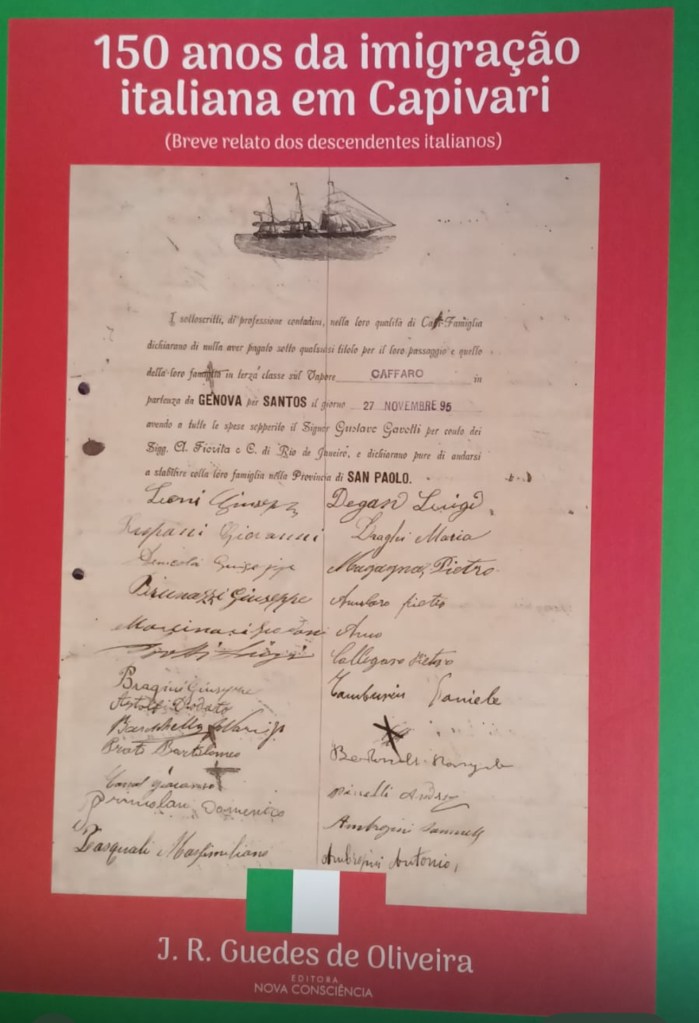 150 anos da imigração
italiana em Capivari
(Breve relato dos descendentes italianos)
I sottoscritti, di professione contadini, nella loro qualità di Capi-Famiglia
dichiarano di nulla aver pagato sotto qualsiasi titolo per il loro passaggio e quello
della loro famiglia in terza classe sul Vapore CAFFARO in
partenza da GENOVA per SANTOS il giorno 27 NOVEMBRE 95
avendo a tutte le spese sopperito il Signor Gustavo Gavotti per conto dei
Sigg. A. Fiorita e C. di Rio de Janeiro, e dichiarano pure di andarsi
a stabilire colla loro famiglia nella Provincia di SAN PAOLO.
Leoni Giuseppe Degani Luigi
Giovanni Draghi Maria
Magagna Pietro
Brunazzi Giuseppe Pietro
Luigi Callegaro Pietro
Bragini Giuseppe Tamburin Daniele
Prato Bartolomeo
Giacomo Andrea
Domenico Ambrosini
Pasquali Massimiliano Ambrosini Antonio
J. R. Guedes de Oliveira
EDITORA
NOVA CONSCIÊNCIA